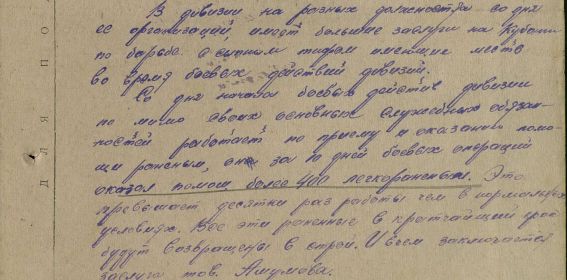 В дивизии на разных должностях со дня
ее организаций, имеет большие заслуги на Кубани
по борьбе с сыпным тифом имеющие место
во время боевых действий дивизий.
Со дня начала боевых действ дивизии
по мимо своих основных служебных обязан-
ностей работает по приему и оказанию помо-
щи раненым, он за 10 дней боевых операций
оказал помощ более 400 легкораненым. Это
превышает десятки раз работы чем в нормальных
условиях. Все эти раненные в кратчайший срок
будут возвращены в строй. И в этом заключается
заслуга тов. Ашумова.
ДЛЯ ПО